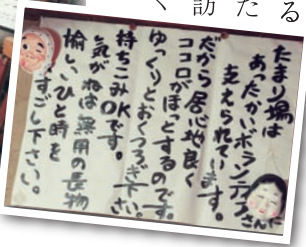 たまり場は
あったかいボランテアさんに
支えられています。
だから居心地良く
ココロがほっとするのです。
ゆっくりとおくつろぎ下さい。
持ちこみOKです。
気がねは無用の長物
愉しいひと時を
すごし下さい。